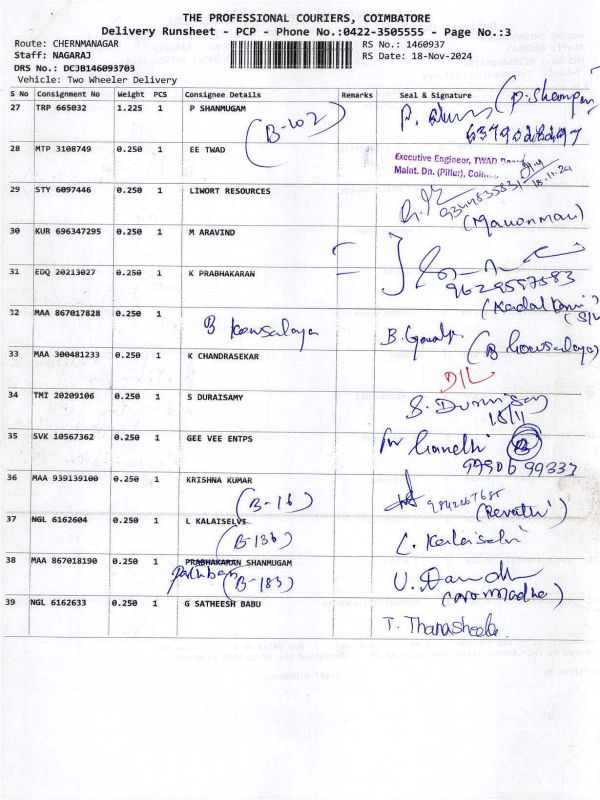 THE PROFESSIONAL COURIERS, COIMBATORE
Delivery Runsheet - PCP - Phone No.:0422-3505555 - Page No.:3
Route: CHERNMANAGAR
RS No.: 1460937
Staff: NAGARAJ
RS Date: 18-Nov-2024
DRS No.: DCJB146093703
Vehicle: Two Wheeler Delivery
S No Consignment No Weight PCS Consignee Details Remarks Seal & Signature
27 TRP 665032 1.225 1 P SHANMUGAM
(B-102)
28 MTP 3108749 0.250 1 EE TWAD
Executive Engineer, TWAD
Maint. Dn. (Pillur),
18.11.24
29 STY 6097446 0.250 1 LIWORT RESOURCES
30 KUR 696347295 0.250 1 M ARAVIND
31 EDQ 20213027 0.250 1 K PRABHAKARAN
9629557583
32 MAA 867017828 0.250 1
B kowsalaya
(B kowsalaya)
33 MAA 300481233 0.250 1 K CHANDRASEKAR
D/L
34 TMI 20209106 0.250 1 S DURAISAMY
18/11
35 SVK 10567362 0.250 1 GEE VEE ENTPS
for Gandhi
36 MAA 939139100 0.250 1 KRISHNA KUMAR
(B-16)
(Revathi)
37 NGL 6162604 0.250 1 L KALAISELVI
(B-136)
C. Kalaiselvi
38 MAA 867018190 0.250 1 PRABHAKARAN SHANMUGAM
(B-183)
39 NGL 6162633 0.250 1 G SATHEESH BABU
T. Thanasheela